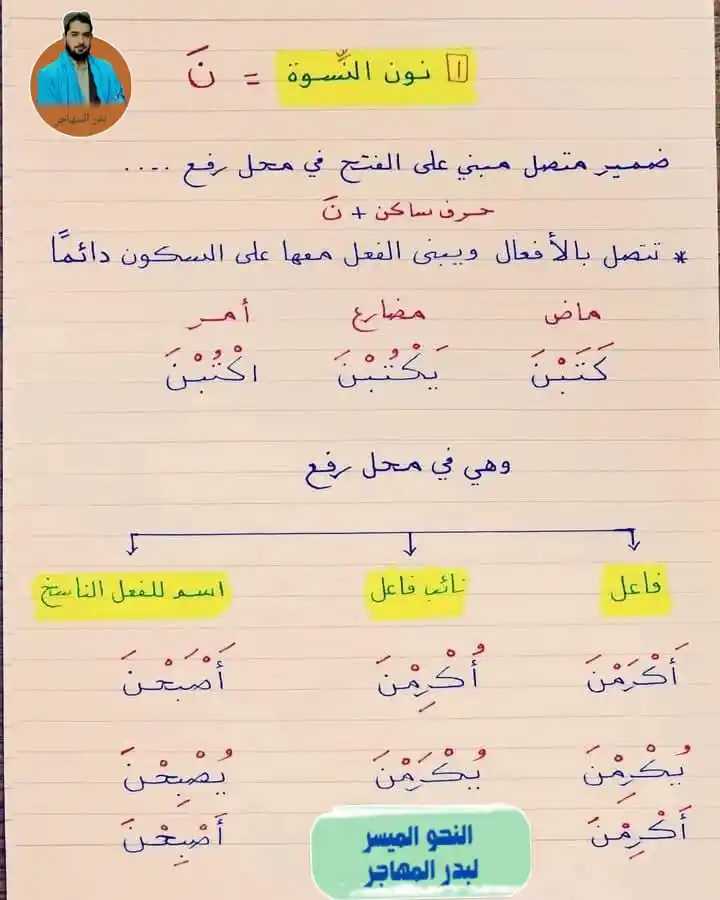 ١ نون النِّسوة = نَ
بدر المهاجر
ضمير متصل مبني على الفتح في محل رفع ....
حرف ساكن + نَ
* تتصل بالأفعال ويبنى الفعل معها على السكون دائمًا
ماض مضارع أمر
كَتَبْنَ يَكْتُبْنَ اكْتُبْنَ
وهي في محل رفع
فاعل نائب فاعل اسم للفعل الناسخ
أَكْرَمْنَ أُكْرِمْنَ أَصْبَحْنَ
يُكْرِمْنَ يُكْرَمْنَ يُصْبِحْنَ
أَكْرِمْنَ أَصْبِحْنَ
النحو الميسر
لبدر المهاجر